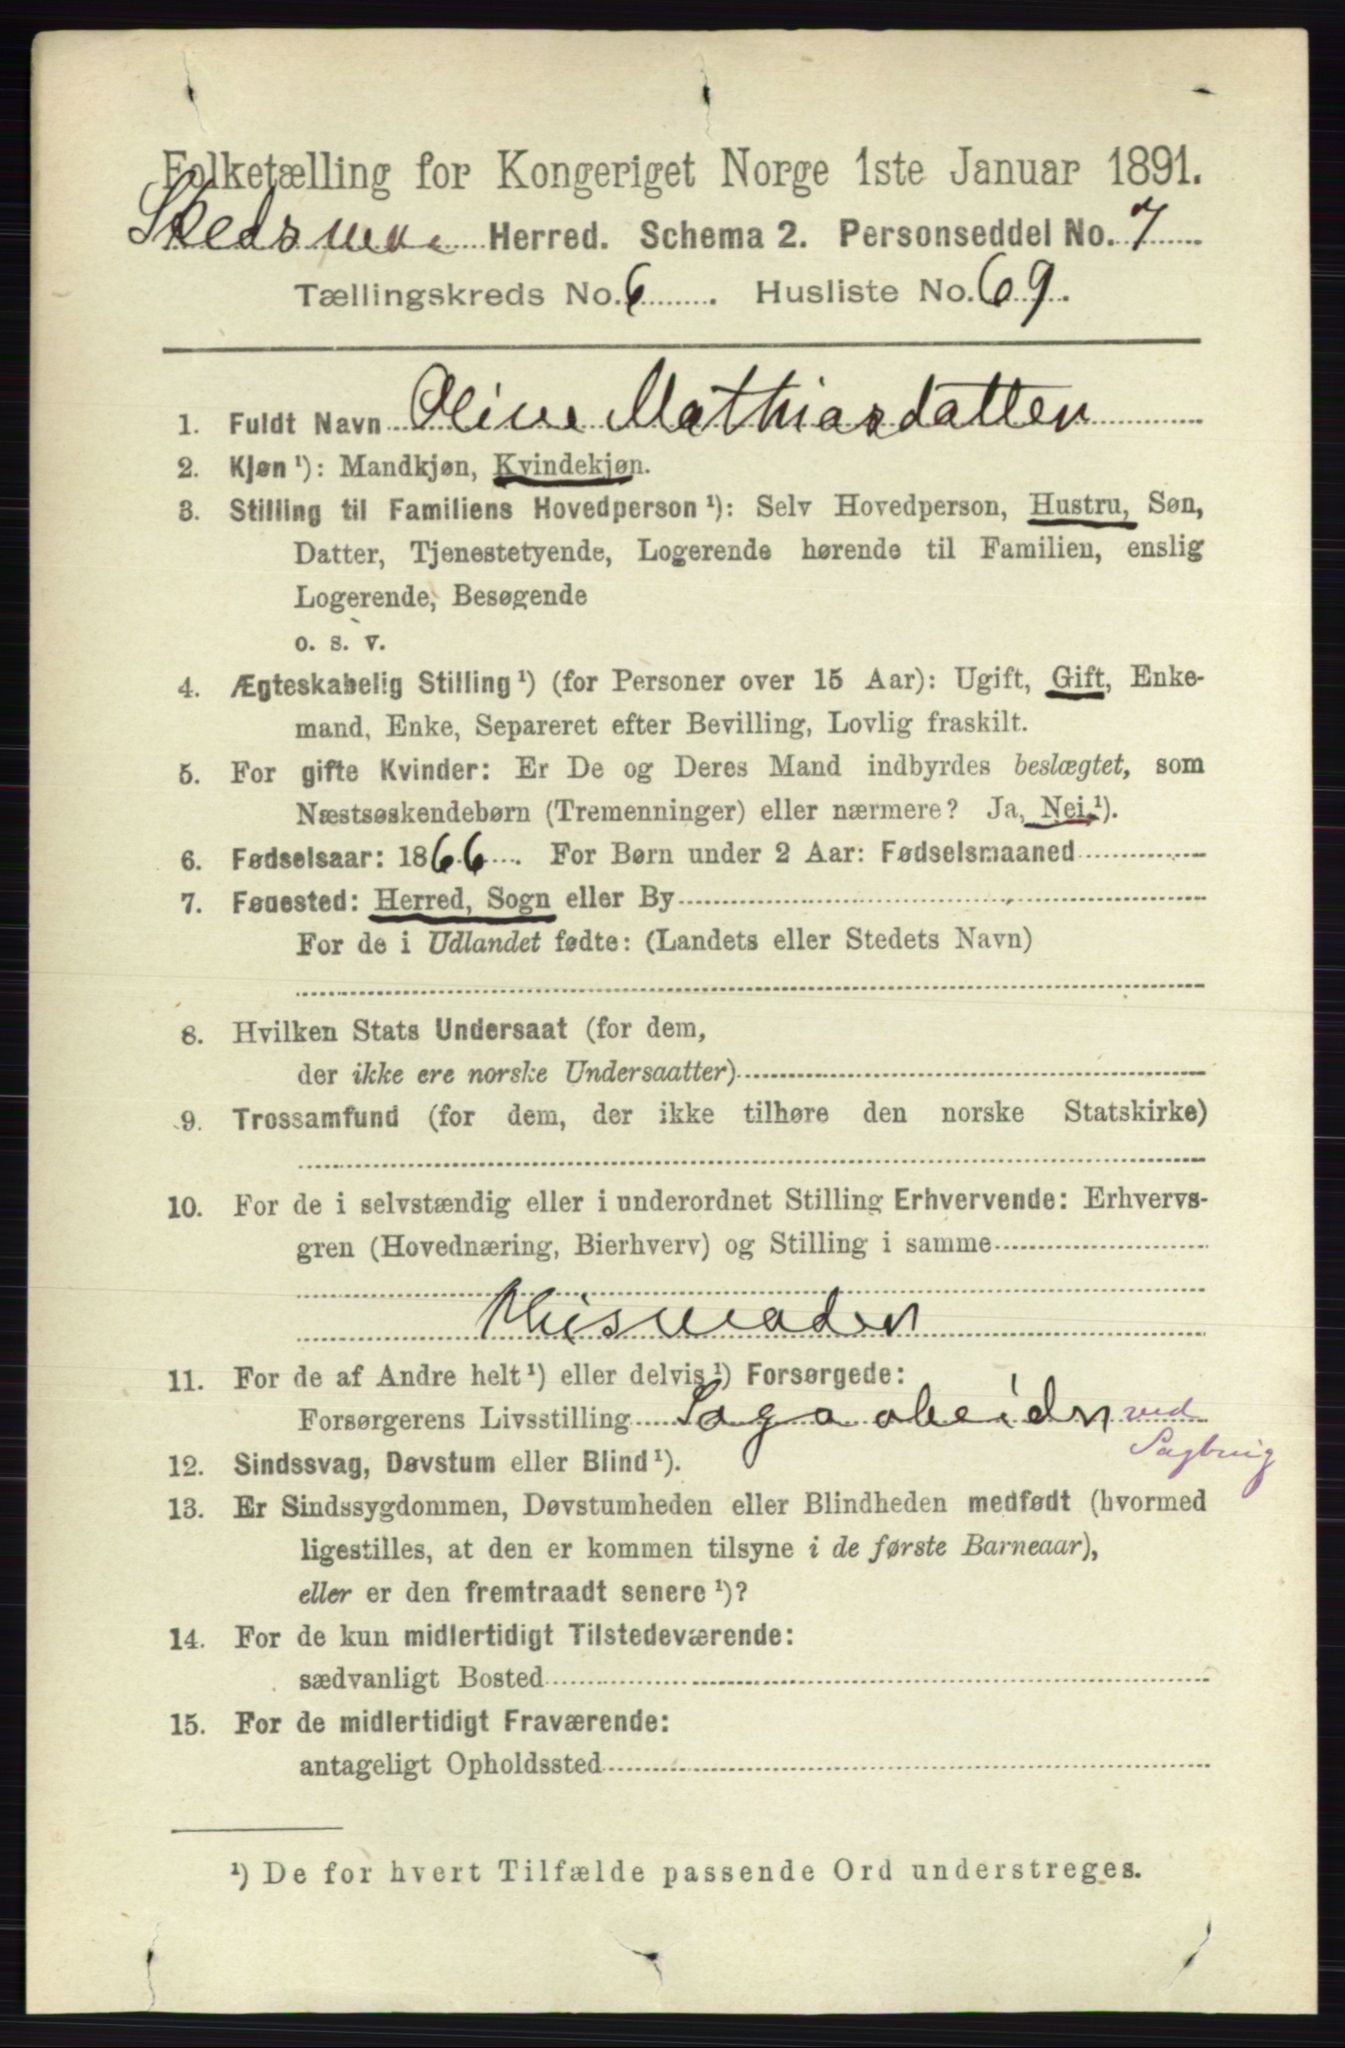 Folketælling for Kongeriget Norge 1ste Januar 1891.
Skedsmo Herred. Schema 2. Personseddel No. 7
Tællingskreds No. 6. Husliste No. 69.
1. Fuldt Navn Oline Mathiasdatter
2. Kjøn ¹): Mandkjøn, Kvindekjøn.
3. Stilling til Familiens Hovedperson ¹): Selv Hovedperson, Hustru, Søn,
Datter, Tjenestetyende, Logerende hørende til Familien, enslig
Logerende, Besøgende
o. s. v.
4. Ægteskabelig Stilling ¹) (for Personer over 15 Aar): Ugift, Gift, Enke-
mand, Enke, Separeret efter Bevilling, Lovlig fraskilt.
5. For gifte Kvinder: Er De og Deres Mand indbyrdes beslægtet, som
Næstsøskendebørn (Tremenninger) eller nærmere? Ja, Nei ¹).
6. Fødselsaar: 1866. For Børn under 2 Aar: Fødselsmaaned
7. Fødested: Herred, Sogn eller By
For de i Udlandet fødte: (Landets eller Stedets Navn)
8. Hvilken Stats Undersaat (for dem,
der ikke ere norske Undersaatter)
9. Trossamfund (for dem, der ikke tilhøre den norske Statskirke)
10. For de i selvstændig eller i underordnet Stilling Erhvervende: Erhvervs-
gren (Hovednæring, Bierhverv) og Stilling i samme
Huismoder
11. For de af Andre helt ¹) eller delvis ¹) Forsørgede:
Forsørgerens Livsstilling Sagaabeider ved
Sagbrug
12. Sindssvag, Døvstum eller Blind ¹).
13. Er Sindssygdommen, Døvstumheden eller Blindheden medfødt (hvormed
ligestilles, at den er kommen tilsyne i de første Barneaar),
eller er den fremtraadt senere ¹)?
14. For de kun midlertidigt Tilstedeværende:
sædvanligt Bosted
15. For de midlertidigt Fraværende:
antageligt Opholdssted
¹) De for hvert Tilfælde passende Ord understreges.